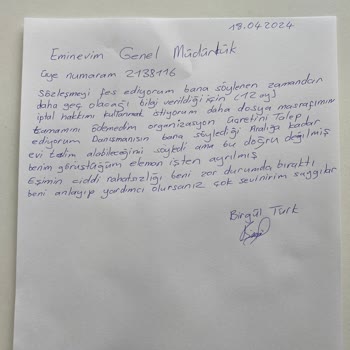 18.04.2024
Eminevim Genel Müdürlük
Üye numaram 2138116
Sözleşmeyi fes ediyorum bana söylenen zamandan
daha geç olacağı bilgi verildiği için (12 ay)
iptal hakkımı kullanmak istiyorum daha dosya masrafımın
tamamını ödemedim organizasyon ücretini Talep
ediyorum Danışmanısın bana söylediği Aralığa kadar
evi talim alabileceğimi söyledi ama bu doğru değilmiş
benim görüştüğüm eleman işten ayrılmış
Eşimin ciddi rahatsızlığı beni zor durumda bıraktı
beni anlayıp yardımcı olursanız çok sevinirim saygılar
Birgül Türk